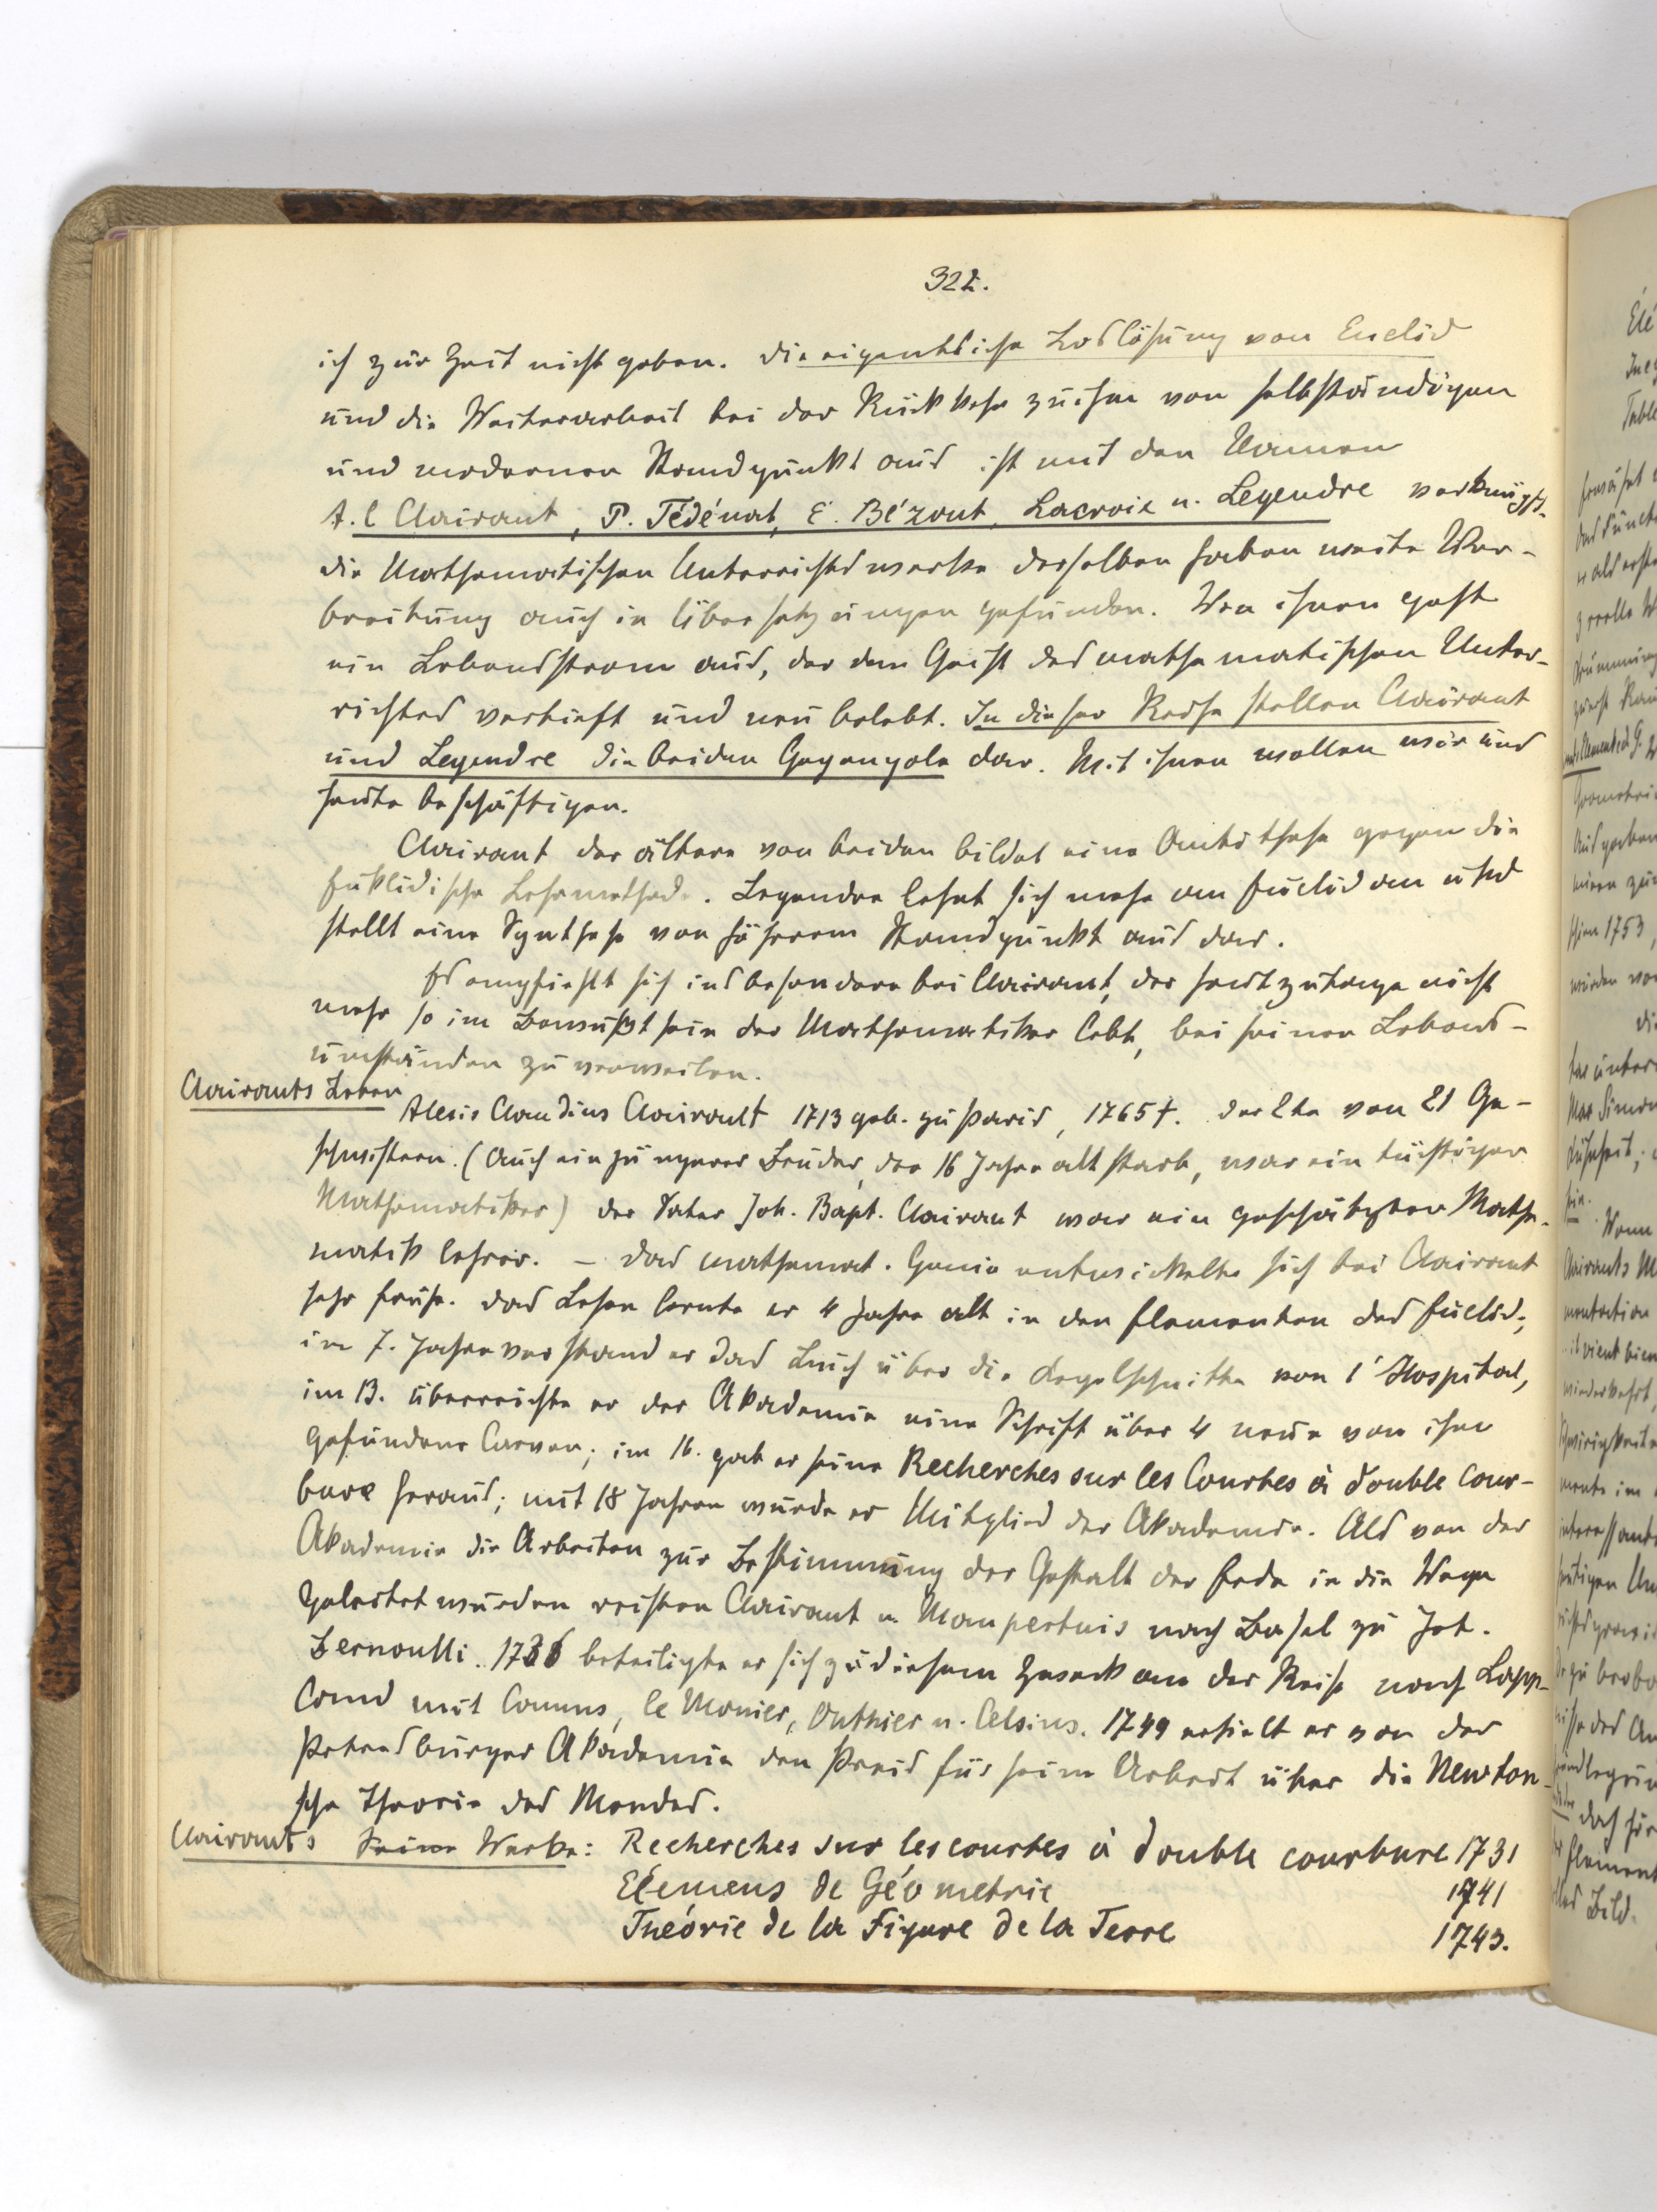 322.
ich zur Zeit nicht geben. Die eigentliche Loslösung von Euclid
und die Weiterarbeit bei der Rückkehr zu ihm von selbständigen
und modernen Standpunkt aus ist mit den Namen
A. C Clairaut, P. Tédénat, E. Bézout, Lacroix u. Legendre verknüpft.
Die Mathematischen Unterrichtswerke derselben haben weite Ver-
breitung auch in Übersetzungen gefunden. Von ihnen geht
ein Lebensstrom aus, der den Geist des mathematischen Unter-
richtes vertieft und neu belebt. In dieser Reihe stellen Clairaut
und Legendre die beiden Gegenpole dar. Mit ihnen wollen wir uns
heute beschäftigen.
Clairaut der ältere von beiden bildet eine Antithese gegen die
Euklidische Lehrmethode. Legendre lehnt sich mehr an Euclid an und
stellt eine Synthese von höherem Standpunkt aus dar.
Es empfiehlt sich insbesondere bei Clairaut, der heutzutage nicht
mehr so im Bewußtsein der Mathematiker lebt, bei seinen Lebens-
umständen zu verweilen.
Clairauts Leben
Alexis Claudius Clairault 1713 geb. zu Paris, 1765 †. Der 2te von 21 Ge-
schwistern. (Auch ein jüngerer Bruder, der 16 Jahre alt starb, war ein tüchtiger
Mathematiker) Der Vater Joh. Bapt. Clairaut war ein geschätzter Mathe-
matiklehrer. – Das mathemat. Genie entwickelte sich bei Clairaut
sehr früh. Das Lesen lernte er 4 Jahre alt in den Elementen des Euclid;
im 7. Jahre verstand er das Buch über die Kegelschnitte von l'Hospital,
im 13. überreichte er der Akademie eine Schrift über 4 neue von ihm
gefundene Curven; im 16. gab er seine Recherches sur les Courbes à double Cour-
bure heraus; mit 18 Jahren wurde er Mitglied der Akademie. Als von der
Akademie die Arbeiten zur Bestimmung der Gestalt der Erde in die Wege
geleitet wurden reisten Clairaut u Maupertuis nach Basel zu Joh.
Bernoulli. 1736 beteiligte er sich zu diesem Zweck an der Reise nach Lapp-
land mit Camus, le Monier, Outhier u. Celsius. 1749 erhielt er von der
Petersburger Akademie den Preis für seine Arbeit über die Newton-
sche Theorie des Mondes.
Clairauts Seine Werke: Recherches sur les courbes à double courbure 1731
Elémens de Géometrie 1741
Théorie de la Figure de la Terre 1743.